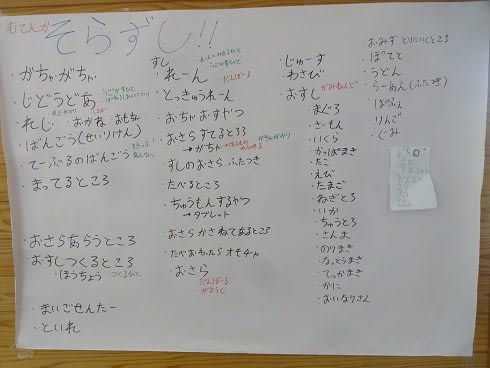 むてんか
そらずし!!
・がちゃがちゃ
・じどうどあ
・れじ・おかね・おもちゃ
・ばんごう(せいりけん)
・てーぶるのばんごう
・まってるところ
・おさらあらうところ
・おすしつくるところ
ほうちょう つくるひと
・まいごせんたー
・といれ
すし
・れーん
だんぼーる
・とっきゅうれーん
・おちゃおすやつ
・おさらすてるところ
→がちゃ
・すしのおさら、ふたつき
・たべるところ
・ちゅうもんするやつ
→タブレット
・おさらかさねてあるところ
・たべおわったらオモチャ
・おさら
だんぼーる
がようし
・じゅーす
・わさび
・おすし かみねんど
・まぐろ
・さーもん
・いくら
・かっぱまき
・たこ
・えび
・たまご
・ねぎとろ
・いか
・ちゅうとろ
・さんま
・のりまき
・なっとうまき
・てっかまき
・かに
・おいなりさん
・おみずとりにいくところ
・ぽてと
・うどん
・らーめん(ふたつき)
・ぱふぇ
・りんご
・ぐみ